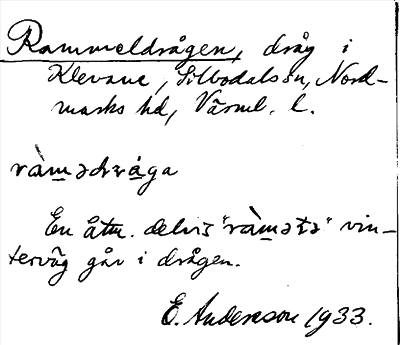 Rammeldrågen, dråg i
Klevane, Silbodals sn, Nord-
marks hd, Värml. l.
ràm̲ədråga
En åtm. delvis "ràm̲ətə" vin-
terväg går i drågen.
E. Anderson 1933.